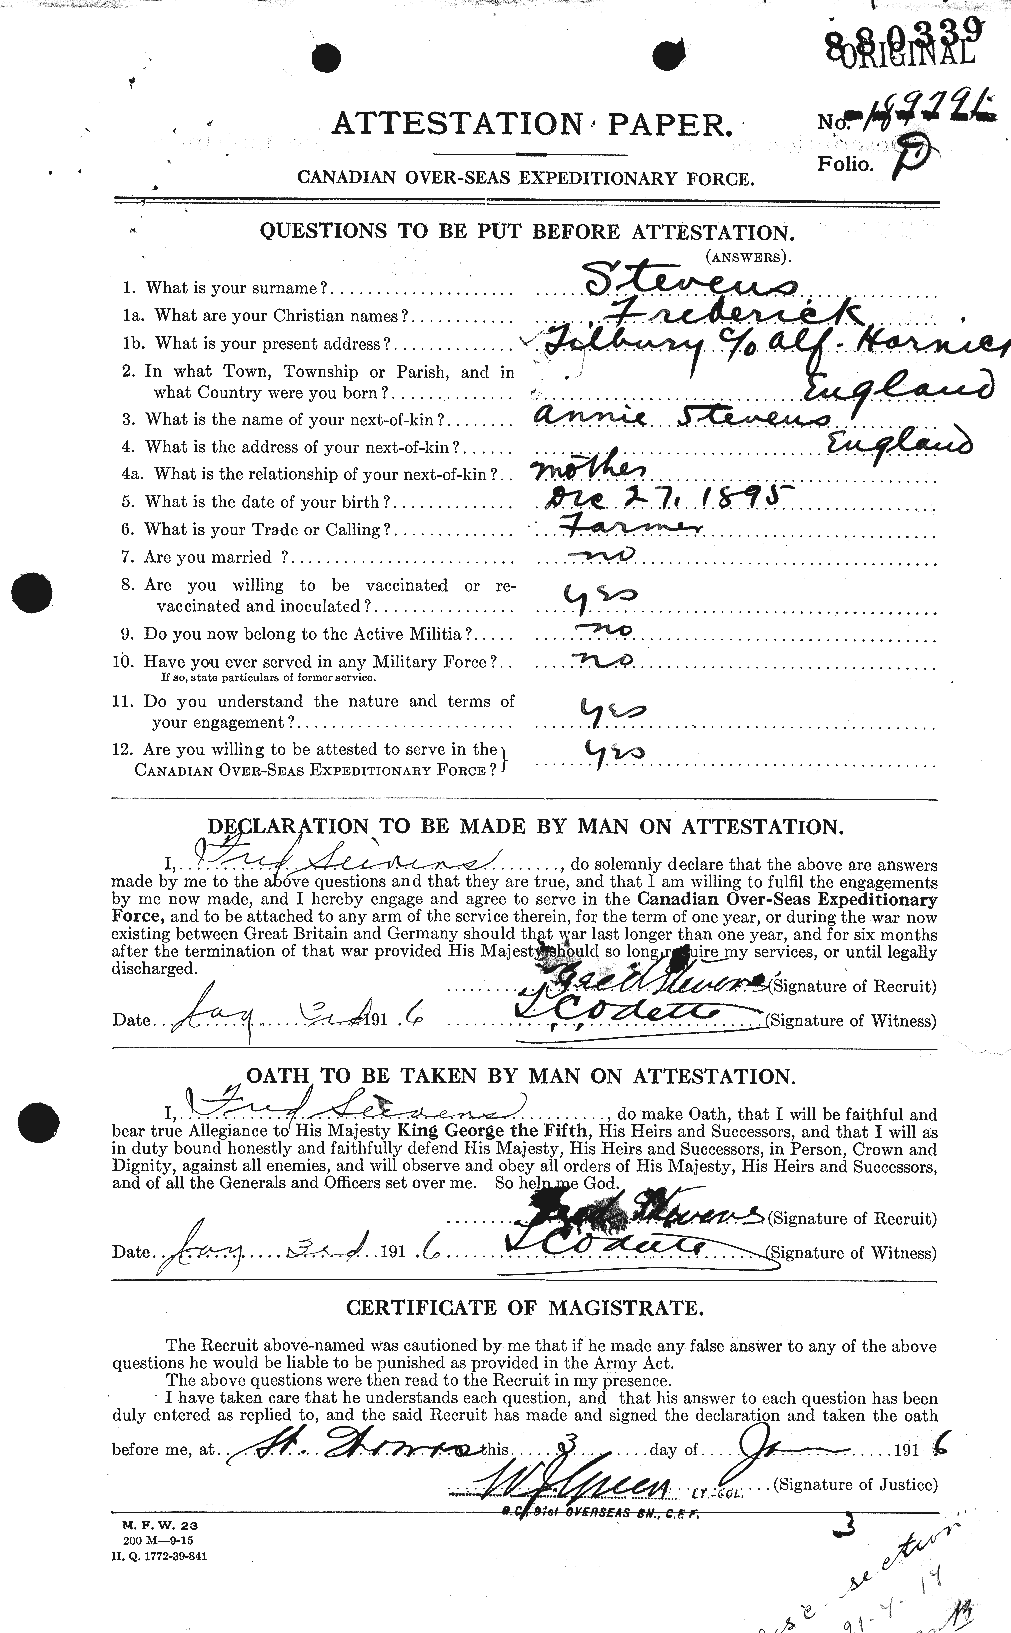 880339
ORIGINAL
ATTESTATION PAPER.
No.
Folio. D
CANADIAN OVER-SEAS EXPEDITIONARY FORCE.
QUESTIONS TO BE PUT BEFORE ATTESTATION.
(ANSWERS).
1. What is your surname? Stevens
1a. What are your Christian names? Frederick
1b. What is your present address? Tilbury c/o Alf. Harnies
2. In what Town, Township or Parish, and in
what Country were you born? England
3. What is the name of your next-of-kin? Annie Stevens
4. What is the address of your next-of-kin? England
4a. What is the relationship of your next-of-kin? Mother
5. What is the date of your birth? Dec 27, 1895
6. What is your Trade or Calling? Farmer
7. Are you married ? no
8. Are you willing to be vaccinated or re-
vaccinated and inoculated? yes
9. Do you now belong to the Active Militia? no
10. Have you ever served in any Military Force? no
If so, state particulars of former service.
11. Do you understand the nature and terms of
your engagement? yes
12. Are you willing to be attested to serve in the
CANADIAN OVER-SEAS EXPEDITIONARY FORCE? yes
DECLARATION TO BE MADE BY MAN ON ATTESTATION.
I, Fred Steivens, do solemnly declare that the above are answers
made by me to the above questions and that they are true, and that I am willing to fulfil the engagements
by me now made, and I hereby engage and agree to serve in the Canadian Over-Seas Expeditionary
Force, and to be attached to any arm of the service therein, for the term of one year, or during the war now
existing between Great Britain and Germany should that war last longer than one year, and for six months
after the termination of that war provided His Majesty should so long require my services, or until legally
discharged.
Fred Stevens (Signature of Recruit)
Date Jay 3rd 1916 L Codette (Signature of Witness)
OATH TO BE TAKEN BY MAN ON ATTESTATION.
I, Fred Steivens, do make Oath, that I will be faithful and
bear true Allegiance to His Majesty King George the Fifth, His Heirs and Successors, and that I will as
in duty bound honestly and faithfully defend His Majesty, His Heirs and Successors, in Person, Crown and
Dignity, against all enemies, and will observe and obey all orders of His Majesty, His Heirs and Successors,
and of all the Generals and Officers set over me. So help me God.
Fred Stevens (Signature of Recruit)
Date Jay 3rd 1916 L Codette (Signature of Witness)
CERTIFICATE OF MAGISTRATE.
The Recruit above-named was cautioned by me that if he made any false answer to any of the above
questions he would be liable to be punished as provided in the Army Act.
The above questions were then read to the Recruit in my presence.
I have taken care that he understands each question, and that his answer to each question has been
duly entered as replied to, and the said Recruit has made and signed the declaration and taken the oath
before me, at St. Thomas this 3 day of Jan 1916
W J Green LT-COL. (Signature of Justice)
O.C. 91st OVERSEAS BN., C.E.F.
M. F. W. 23
200 M—9-15
H. Q. 1772-39-841
3
section